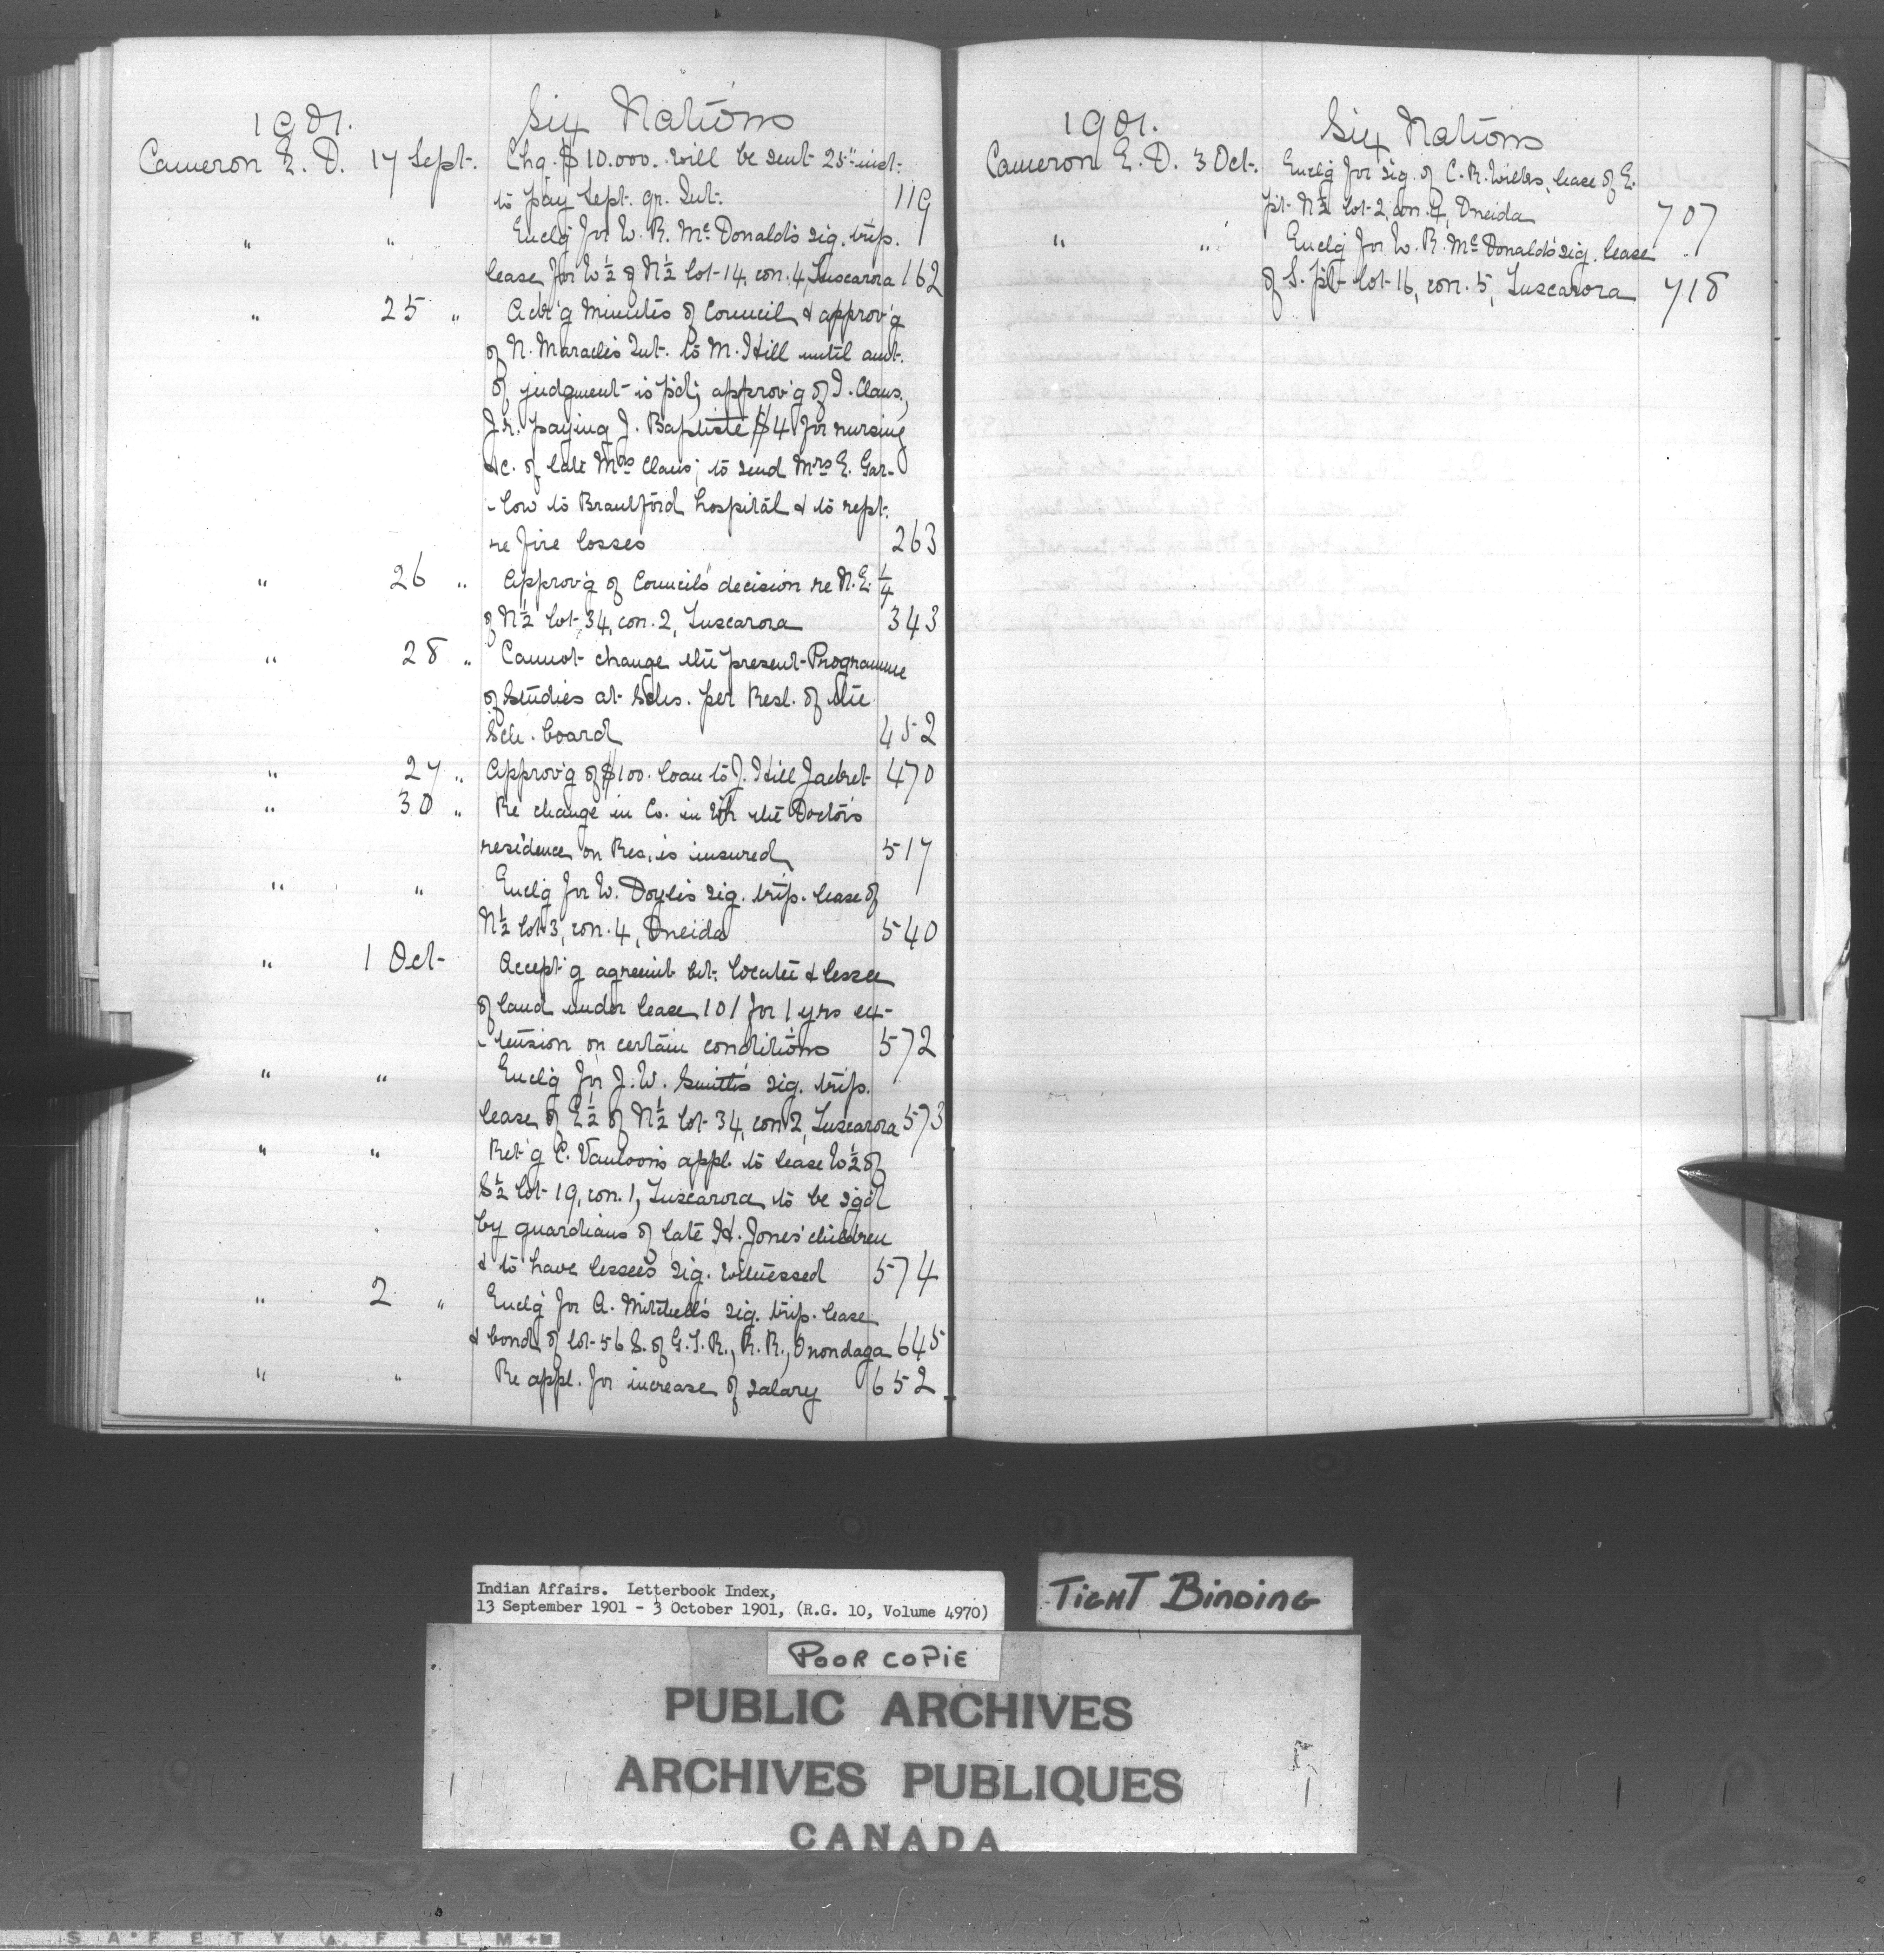 1901. Six Nations
Cameron E. D. 17 Sept. Chq. $10.000. will be sent 25" inst.
to pay Sept. qr. Int. 119
" " Encl'g for W. R. McDonald's sig. trip.
lease for W ½ of N ½ lot 14, con. 4, Tuscarora 162
" 25 " Ack'g minutes of Council & approv'g
of N. Maracle's Int. to M. Hill until amt.
of judgment is p'd; approv'g of I. Claus,
Jr. paying J. Baptiste $4 for nursing
&c. of late Mrs Claus; to send Mrs E. Gar-
-low to Brantford hospital & to rept.
re fire losses 263
" 26 " Approv'g of Council's decision re N.E. ¼
of N ½ lot 34, con. 2, Tuscarora 343
" 28 " Cannot change the present Programme
of Studies at Schs. per Resl. of the
Sch. board 452
" 27 " Approv'g of $100. loan to J. Hill Jacket 470
" 30 " Re change in Co. in wh the Doctor's
residence on Res. is insured 517
" " Encl'g for W. Doyle's sig. trip. lease of
N ½ lot 3, con. 4, Oneida 540
" 1 Oct. Accept'g agreemt bet. locatee & lessee
of land under lease 101 for 1 yrs ex-
-tension on certain conditions 572
" " Encl'g for J. W. Smith's sig. trip.
lease of E ½ of N ½ lot 34, con 2, Tuscarora 573
" " Ret'g C. Vanloon's appl. to lease W ½ of
S ½ lot 19, con. 1, Tuscarora to be sig'd
by guardians of late H. Jones' children
& to have lessee's sig. witnessed 574
" 2 " Encl'g for A. Mitchell's sig. trip. lease
& bond of lot 56 S. of G.T.R., R.R., Onondaga 645
" " Re appl. for increase of salary 652
1901. Six Nations
Cameron E. D. 3 Oct. Encl'g for sig. of C. R. lease of E.
pt. N ½ lot 2, con. 4, Oneida 707
" " Encl'g for W. R. McDonald's sig. lease
of S. pt lot 16, con. 5, Tuscarora 718
Indian Affairs. Letterbook Index,
13 September 1901 - 3 October 1901, (R.G. 10, Volume 4970)
TIGHT BINDING
POOR COPIE
PUBLIC ARCHIVES
ARCHIVES PUBLIQUES
CANADA
SAFETY FILM